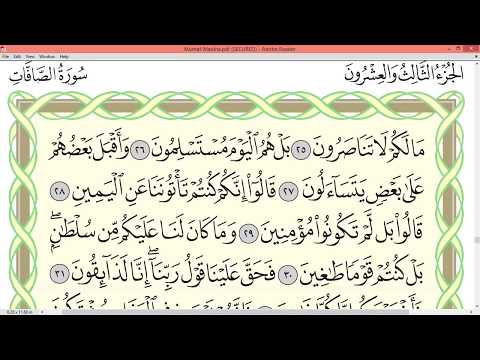 Mushaf-Madina.pdf (SECURED) - Adobe Reader
File Edit View Window Help
سُورَةُ الصَّافَّاتِ
الجُزْءُ الثَّالِثُ وَالعِشْرُونَ
مَا لَكُمْ لَا تَنَاصَرُونَ ٢٥ بَلْ هُمُ الْيَوْمَ مُسْتَسْلِمُونَ ٢٦ وَأَقْبَلَ بَعْضُهُمْ
عَلَى بَعْضٍ يَتَسَاءَلُونَ ٢٧ قَالُوا إِنَّكُمْ كُنتُمْ تَأْتُونَنَا عَنِ الْيَمِينِ ٢٨
قَالُوا بَل لَّمْ تَكُونُوا مُؤْمِنِينَ ٢٩ وَمَا كَانَ لَنَا عَلَيْكُم مِّن سُلْطَانٍ ۖ
بَلْ كُنتُمْ قَوْمًا طَاغِينَ ٣٠ فَحَقَّ عَلَيْنَا قَوْلُ رَبِّنَا ۖ إِنَّا لَذَائِقُونَ ٣١
8.26 x 11.69 in